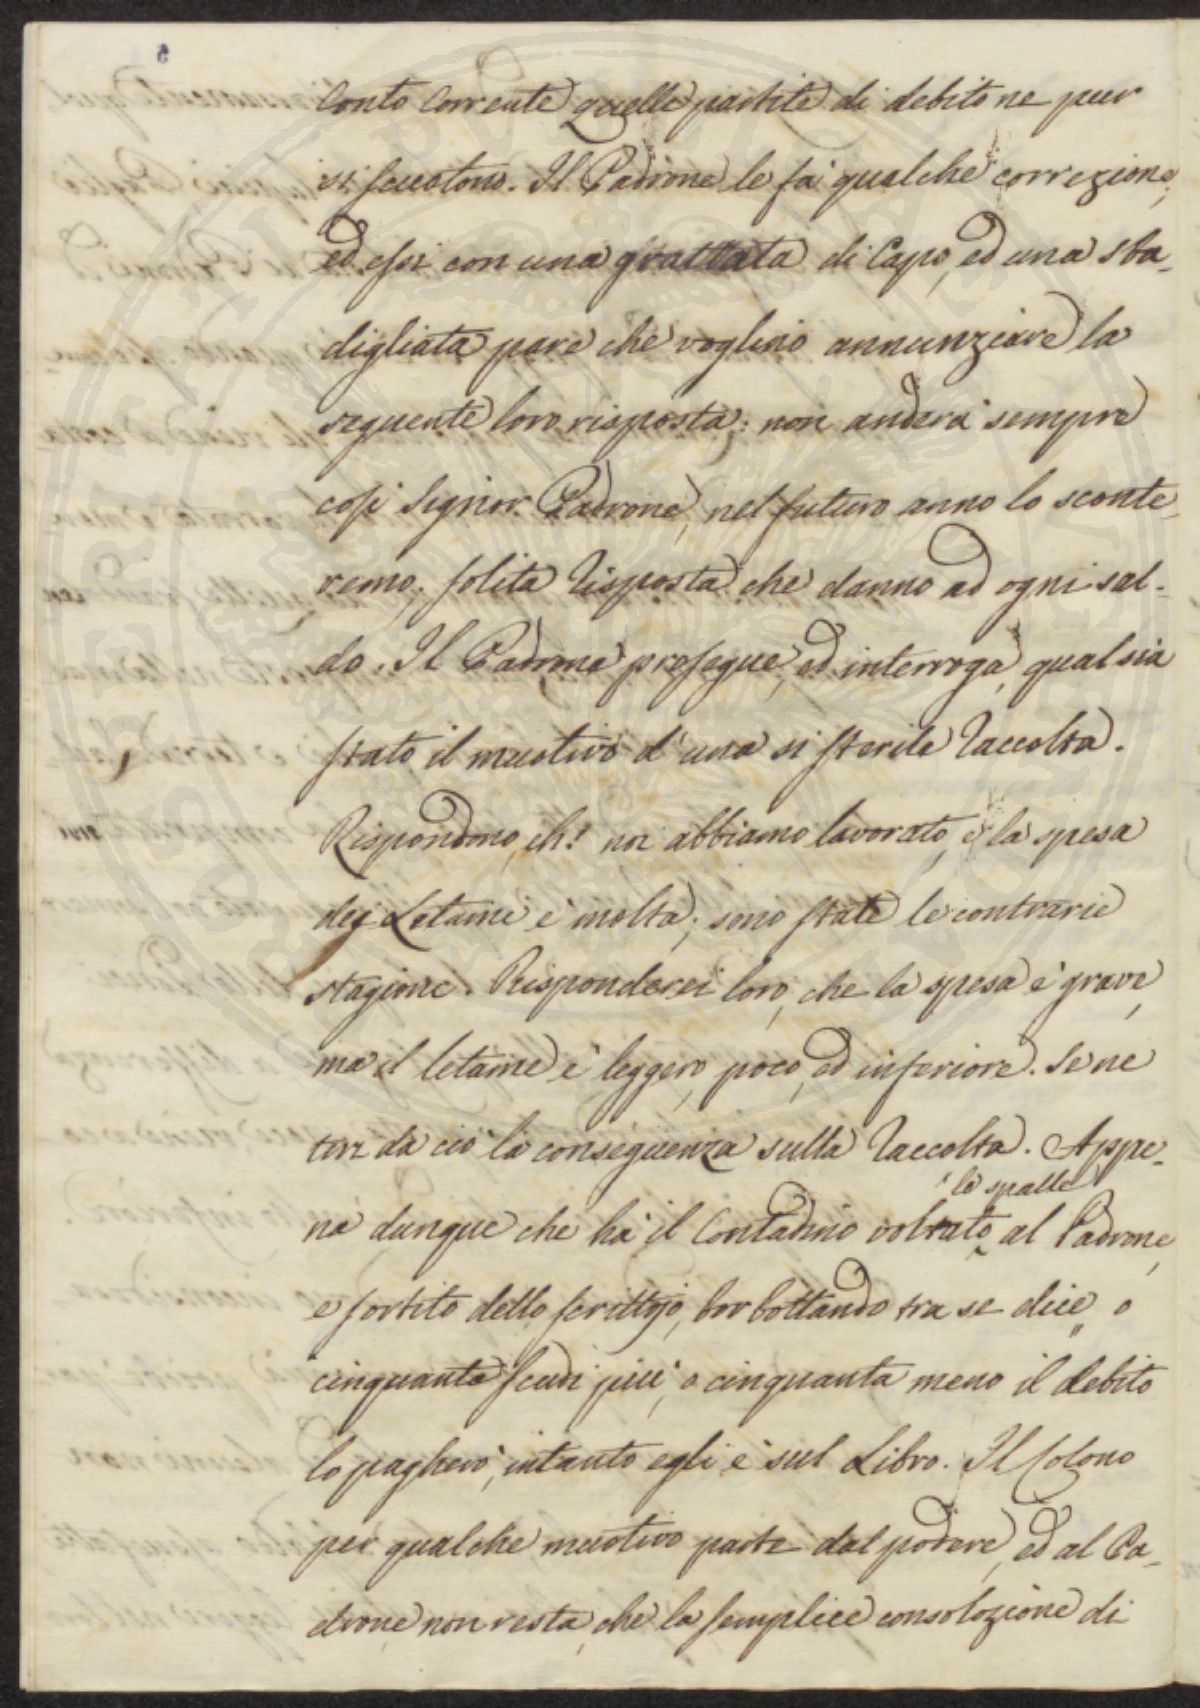 Conto Corrente quelle partite di debito ne pur
si scuotono. Il Padrone le fà qualche correzione,
ed essi con una grattata di Capo, ed una sba-
digliata pare che voglino annunziare la
seguente loro risposta: non anderà sempre
così Signor Padrone, nel futuro anno lo sconte-
remo; solita risposta che danno ad ogni sal-
do. Il Padrone prosegue, ed interroga, qual sia
stato il muotivo d'una si sterile raccolta.
Rispondono, eh! noi abbiamo lavorato, e la spesa
dei Letami è molta; sono state le contrarie
stagioni. Risponderei loro, che la spesa è grave,
ma il letame è leggero, poco, ed inferiore. Se ne
tiri da ciò la conseguenza sulla raccolta. Appe-
le spalle
na dunque che hà il Contadino voltato al Padrone,
e sortito dello scrittojo, borbottando tra se dice, o
cinquanta scudi più, o cinquanta meno il debito
lo pagherò, intanto egli è sul Libro. Il Colono
per qualche muotivo parte dal podere, ed al Pa-
drone non resta, che la semplice consolazione di